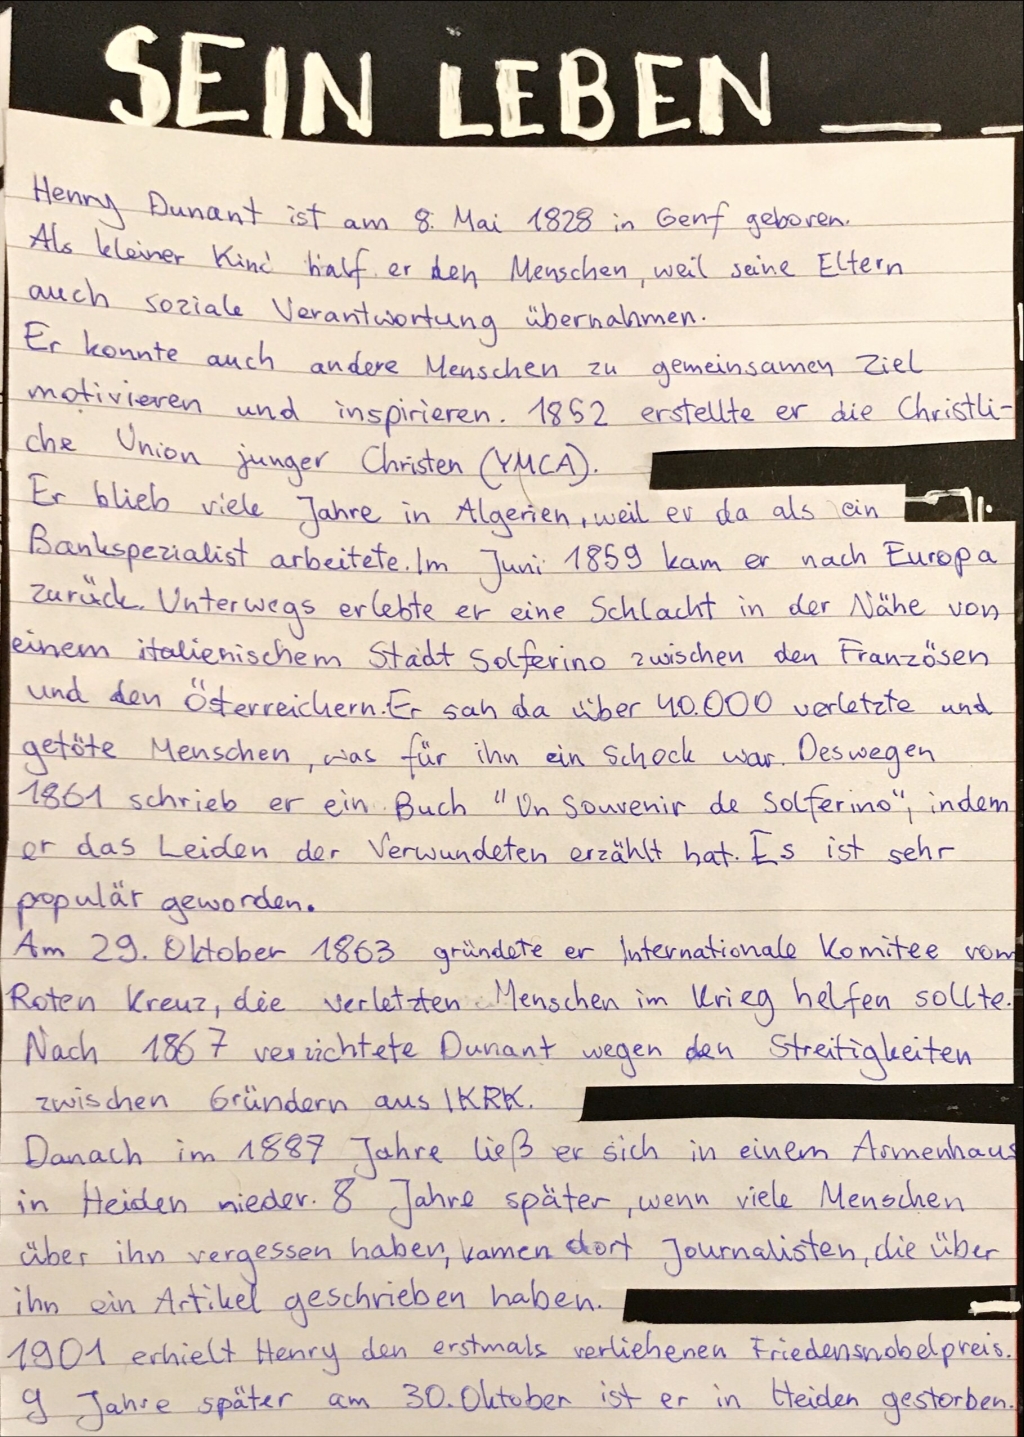 SEIN LEBEN
Henry Dunant ist am 8. Mai 1828 in Genf geboren.
Als kleiner Kind half er den Menschen, weil seine Eltern
auch soziale Verantwortung übernahmen.
Er konnte auch andere Menschen zu gemeinsamen Ziel
motivieren und inspirieren. 1852 erstellte er die Christli-
che Union junger Christen (YMCA).
Er blieb viele Jahre in Algerien, weil er da als ein
Bankspezialist arbeitete. Im Juni 1859 kam er nach Europa
zurück. Unterwegs erlebte er eine Schlacht in der Nähe von
einem italienischem Stadt Solferino zwischen den Französen
und den Österreichern. Er sah da über 40.000 verletzte und
getöte Menschen, was für ihn ein Schock war. Deswegen
1861 schrieb er ein Buch "Un Souvenir de Solferino", indem
er das Leiden der Verwundeten erzählt hat. Es ist sehr
populär geworden.
Am 29. Oktober 1863 gründete er Internationale Komitee vom
Roten Kreuz, die verletzten Menschen im Krieg helfen sollte.
Nach 1867 verzichtete Dunant wegen den Streitigkeiten
zwischen Gründern aus IKRK.
Danach im 1887 Jahre ließ er sich in einem Armenhaus
in Heiden nieder. 8 Jahre später, wenn viele Menschen
über ihn vergessen haben, kamen dort Journalisten, die über
ihn ein Artikel geschrieben haben.
1901 erhielt Henry den erstmals verliehenen Friedensnobelpreis.
9 Jahre später am 30. Oktober ist er in Heiden gestorben.